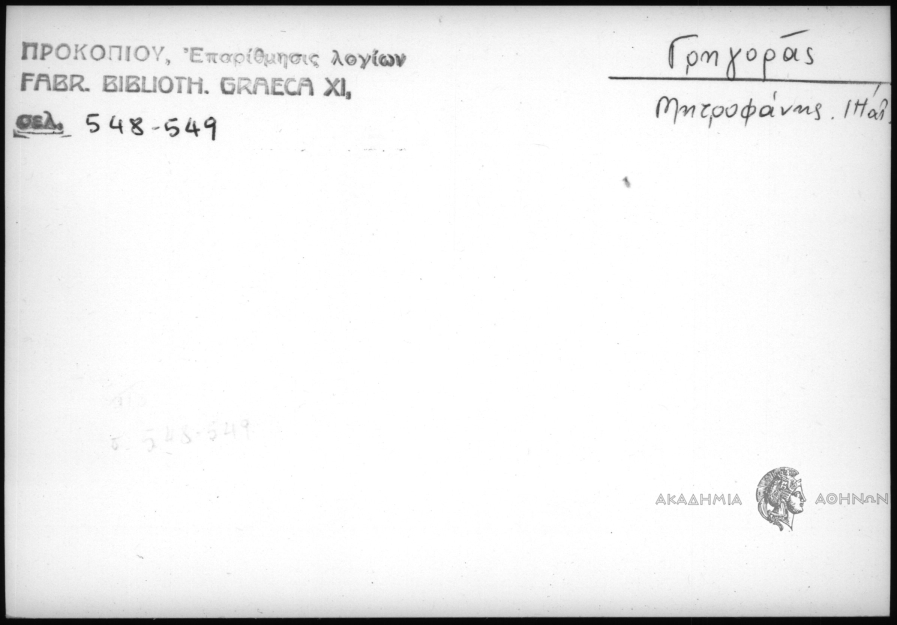 ΠΡΟΚΟΠΙΟΥ, Ἐπαρίθμησις λογίων
FABR. BIBLIOTH. GRAECA XI,
σελ. 548-549
Γρηγοράς
Μητροφάνης.
σ. 548-549
ΑΚΑΔΗΜΙΑ ΑΘΗΝΩΝ